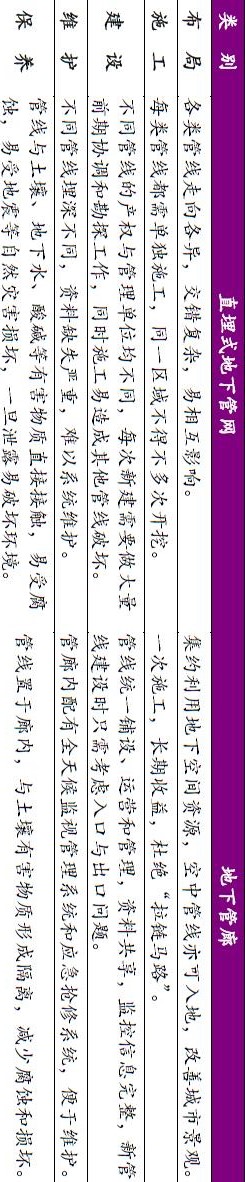 类 别 直埋式地下管网 地下管廊
布 局 各类管线走向各异，交错复杂，易相互影响。 集约利用地下空间资源，空中管线亦可入地，改善城市景观。
施 工 每类管线都需单独施工，同一区域不得不多次开挖。 一次施工，长期收益，杜绝“拉链马路”。
建 设 不同管线的产权与管理单位均不同，每次新建需要做大量
前期协调和勘探工作，同时施工易造成其他管线破坏。
管线统一铺设、运营和管理，资料共享，监控信息完整，新管
线建设时只需考虑入口与出口问题。
维 护 不同管线埋深不同，资料缺失严重，难以系统维护。 管廊内配有全天候监视管理系统和应急抢修系统，便于维护。
保 养 管线与土壤、地下水、酸碱等有害物质直接接触，易受腐
蚀，易受地震等自然灾害损坏，一旦泄露易破坏环境。
管线置于廊内，与土壤有害物质形成隔离，减少腐蚀和损坏。